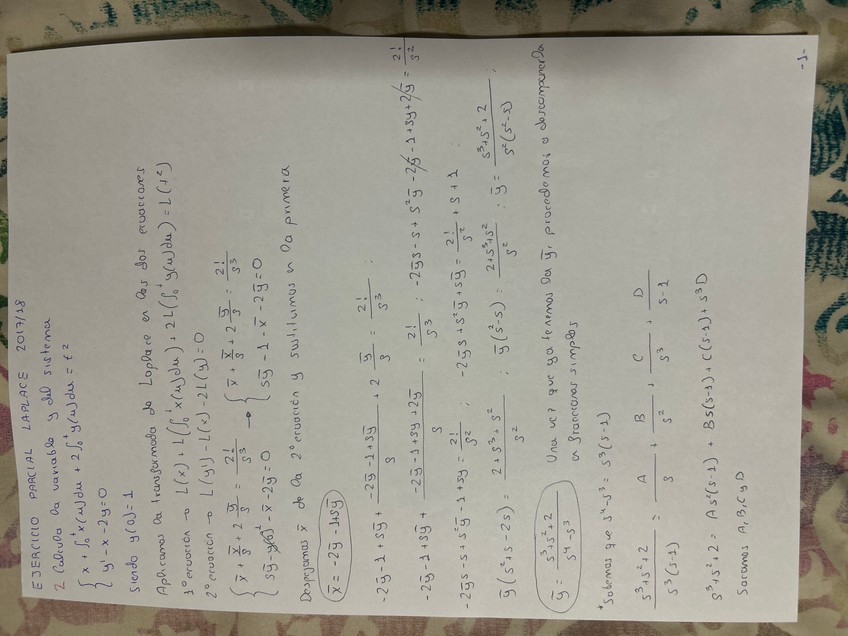 EJERCICIO PARCIAL LAPLACE 2017/18
2 Calcula la variable y del sistema
{ x + ∫₀ᵗ x(u)du + 2∫₀ᵗ y(u)du = t²
{ y' - x - 2y = 0
siendo y(0) = 1
Aplicamos la transformada de Laplace en las dos ecuaciones
1º ecuación → L(x) + L(∫₀ᵗ x(u)du) + 2L(∫₀ᵗ y(u)du) = L(t²)
2º ecuación → L(y') - L(x) - 2L(y) = 0
{ x̄ + x̄/s + 2 ȳ/s = 2!/s³ { x̄ + x̄/s + 2 ȳ/s = 2!/s³
{ sȳ - y(0)¹ - x̄ - 2ȳ = 0 → { sȳ - 1 - x̄ - 2ȳ = 0
Despejamos x̄ de la 2º ecuación y sustituimos en la primera
x̄ = -2ȳ - 1 + sȳ
-2ȳ - 1 + sȳ + (-2ȳ - 1 + sȳ)/s + 2 ȳ/s = 2!/s³ ;
-2ȳ - 1 + sȳ + (-2ȳ - 1 + sȳ + 2ȳ)/s = 2!/s³ ; -2ȳs - s + s²ȳ - 2ȳ - 1 + sȳ + 2ȳ = 2!/s²
-2ȳs - s + s²ȳ - 1 + sȳ = 2!/s² ; -2ȳs + s²ȳ + sȳ = 2!/s² + s + 1 ;
ȳ(s² + s - 2s) = (2 + s³ + s²)/s² ; ȳ(s² - s) = (2 + s³ + s²)/s² ; ȳ = (s³ + s² + 2)/(s²(s² - s)) ;
ȳ = (s³ + s² + 2)/(s⁴ - s³) Una vez que ya tenemos la ȳ, procedemos a descomponerla
en fracciones simples
*Sabemos que s⁴ - s³ = s³(s - 1)
(s³ + s² + 2)/(s³(s - 1)) = A/s + B/s² + C/s³ + D/(s - 1)
s³ + s² + 2 = As²(s - 1) + Bs(s - 1) + C(s - 1) + s³D
Sacamos A, B, C y D
-1-